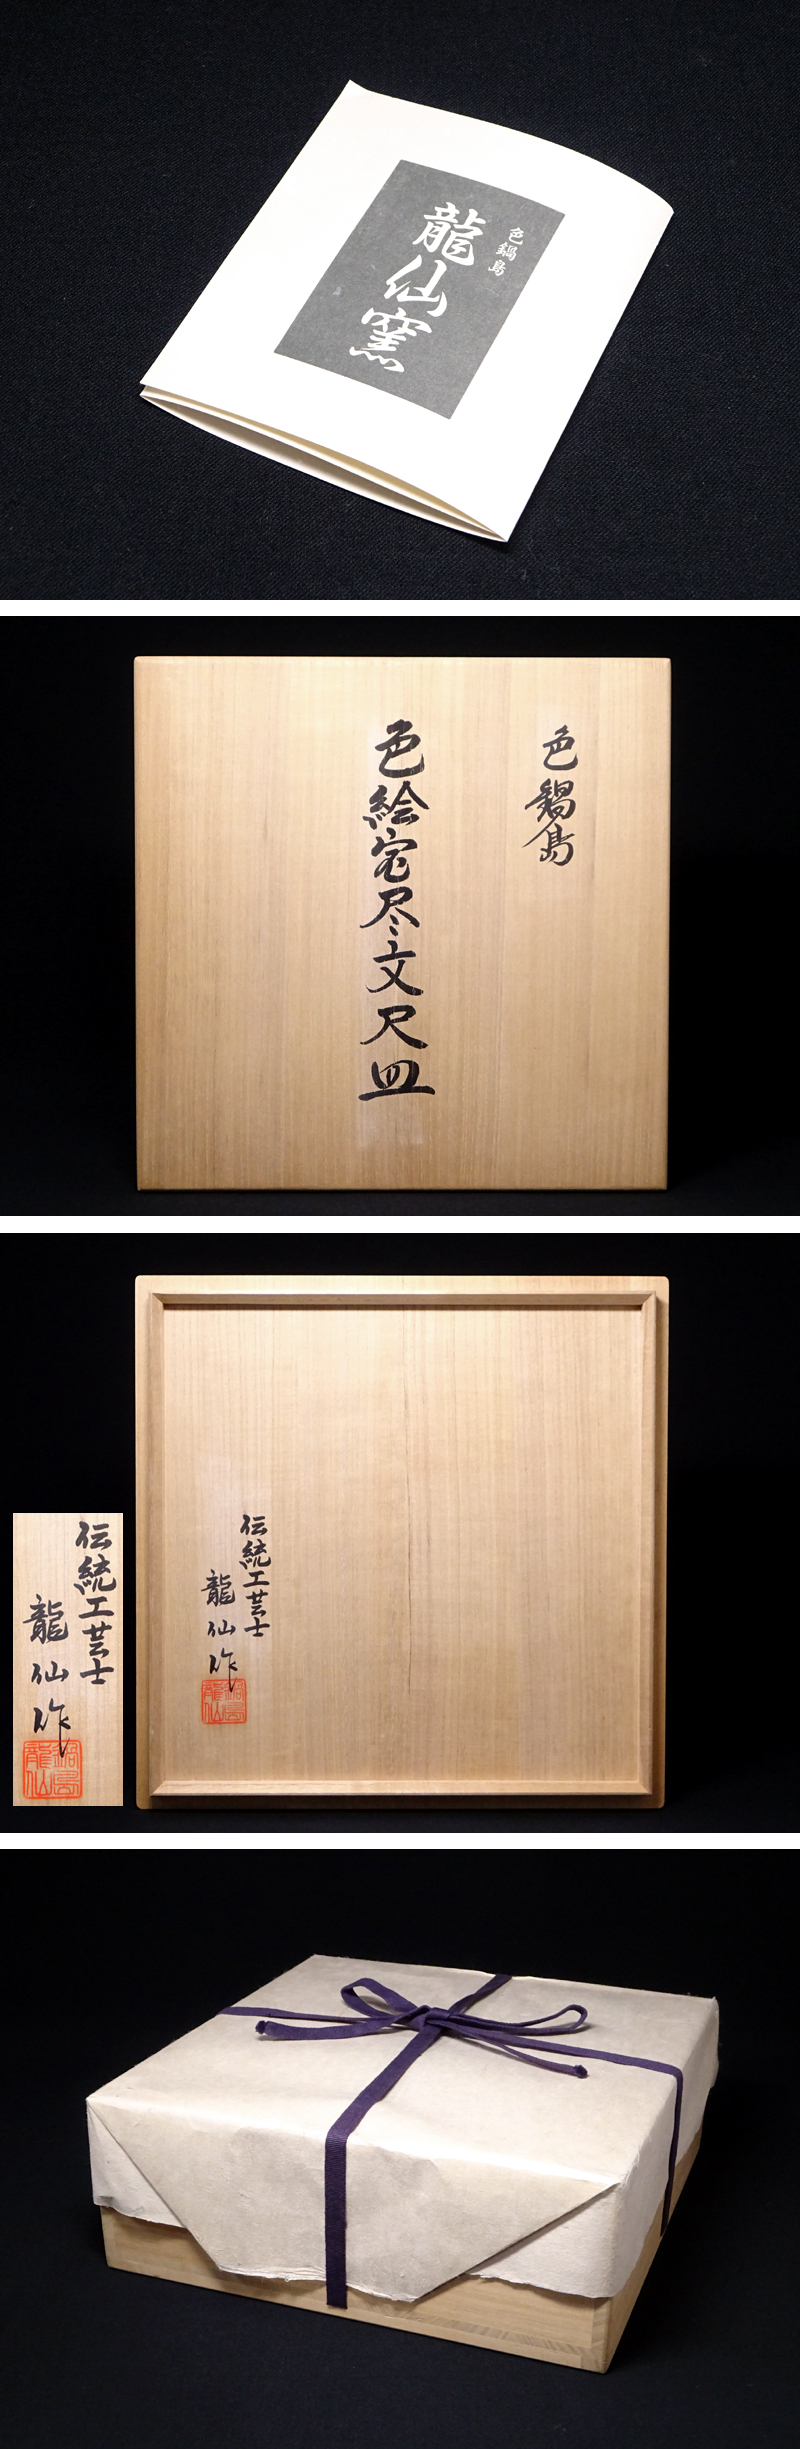 色鍋島
龍仙窯
色鍋島
色絵宝尽文尺皿
伝統工芸士
龍仙作
鍋島
龍仙
伝統工芸士
龍仙作
鍋島
龍仙